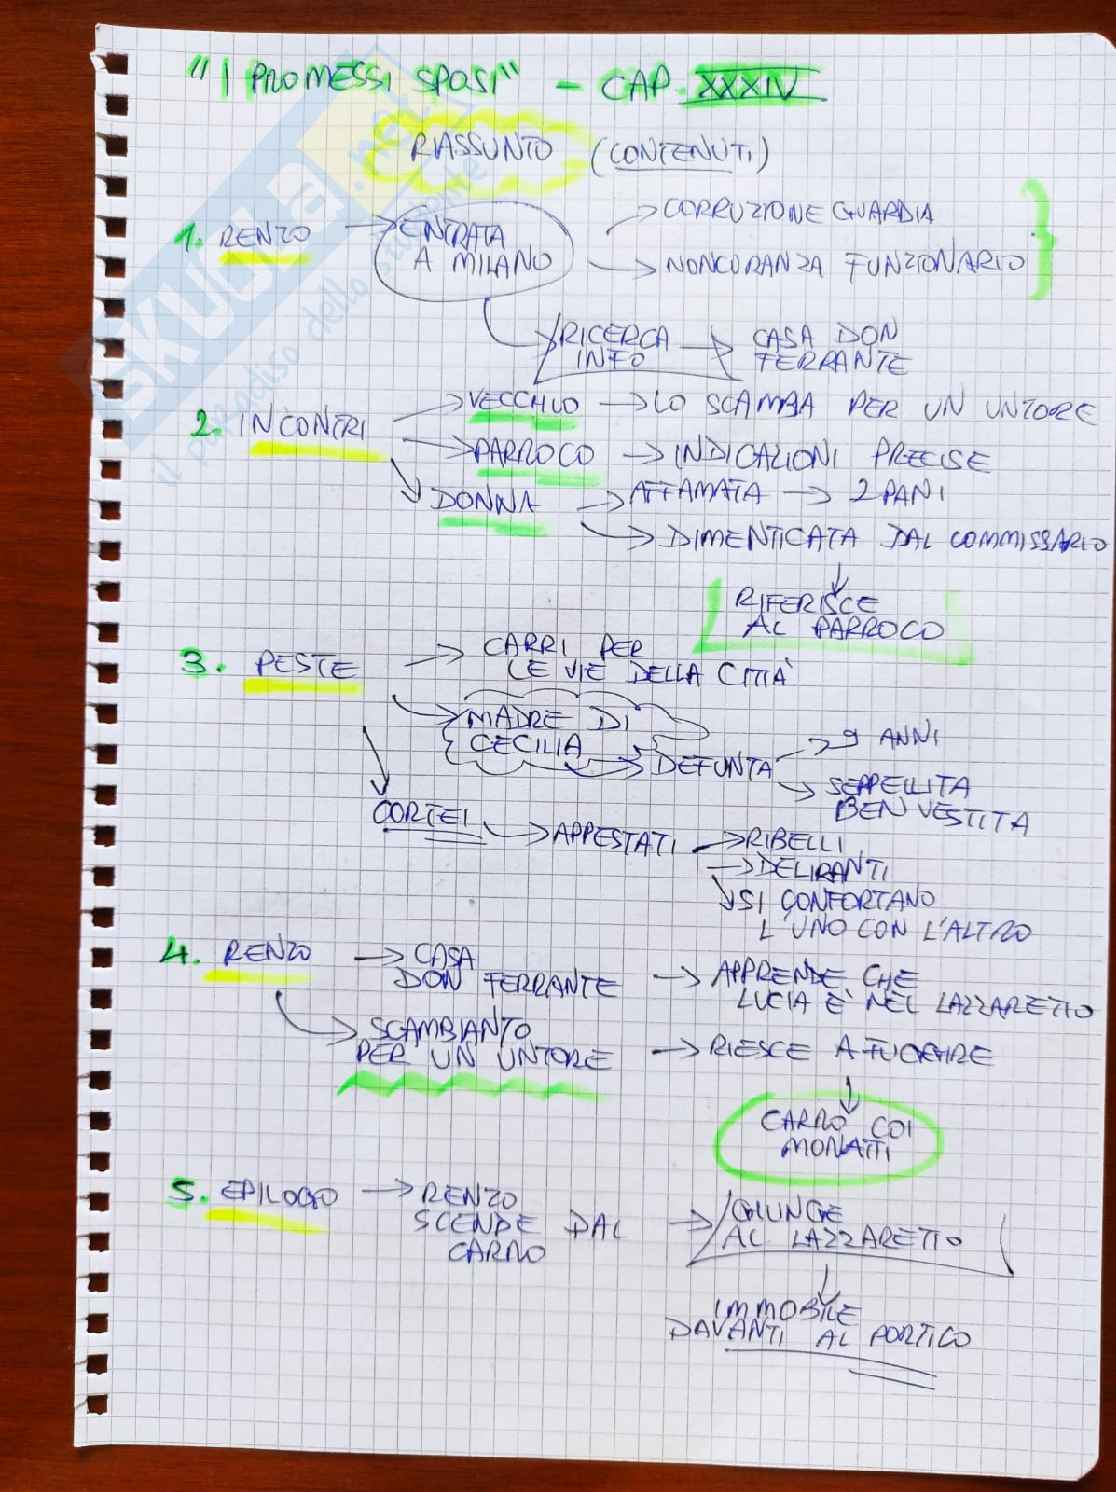 "I PROMESSI SPOSI" - CAP. XXXIV
RIASSUNTO (CONTENUTI)
1. RENZO → ENTRATA
A MILANO
→ CORRUZIONE GUARDIA
→ NONCURANZA FUNZIONARIO
RICERCA
INFO
→ CASA DON
FERRANTE
2. INCONTRI
→ VECCHIO → LO SCAMBIA PER UN UNTORE
→ PARROCO → INDICAZIONI PRECISE
→ DONNA → AFFAMATA → 2 PANI
→ DIMENTICATA DAL COMMISSARIO
RIFERISCE
AL PARROCO
3. PESTE → CARRI PER
LE VIE DELLA CITTÀ
→ MADRE DI
CECILIA
→ DEFUNTA → 9 ANNI
→ SEPPELLITA
BEN VESTITA
CORTEI → APPESTATI → RIBELLI
→ DELIRANTI
→ SI CONFORTANO
L'UNO CON L'ALTRO
4. RENZO → CASA
DON FERRANTE
→ APPRENDE CHE
LUCIA È NEL LAZZARETTO
→ SCAMBIANTO
PER UN UNTORE
→ RIESCE A FUGGIRE
CARRO COI
MONATTI
5. EPILOGO → RENZO
SCENDE DAL
CARRO
→ GIUNGE
AL LAZZARETTO
IMMOBILE
DAVANTI AL PORTICO
SKUOLA.net
il paradiso dello studente